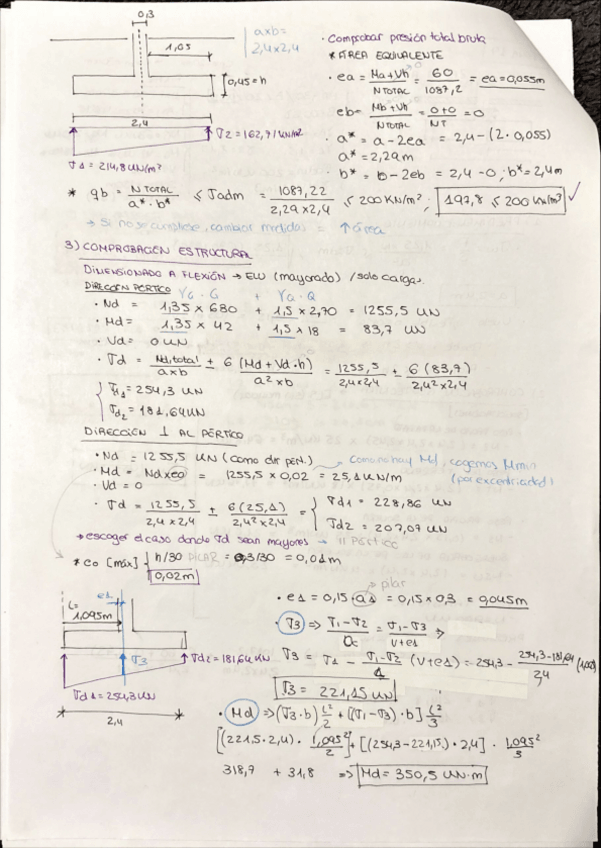 0.3
a x b =
2,4 x 2,4
1,05
0,45 = h
2,4
σ2 = 162,71 kN/m²
σ1 = 214,8 kN/m²
· Comprobar presión total bruta
* ÁREA EQUIVALENTE
· ea = Ma + Vh / N TOTAL = 60 / 1087,2 = ea = 0,055m
eb = Mb + Vh / N TOTAL = 0+0 / NT = 0
· a* = a - 2ea = 2,4 - (2 · 0,055)
a* = 2,29m
· b* = b - 2eb = 2,4 - 0 ; b* = 2,4m
* qb = N TOTAL / a* · b* ≤ σadm = 1087,22 / 2,29 x 2,4 ≤ 200 kN/m² ; 197,8 ≤ 200 kN/m² ✓
→ Si no se cumpliese, cambiar medidas = ↑ área
3) COMPROBACIÓN ESTRUCTURAL
DIMENSIONADO A FLEXIÓN → ELU (mayorado) / solo cargas.
DIRECCIÓN PÓRTICO γG · G + γQ · Q
· Nd = 1,35 x 680 + 1,5 x 2,70 = 1255,5 kN
· Md = 1,35 x 42 + 1,5 x 18 = 83,7 kN
· Vd = 0 kN
· σd = Nd,total / a x b ± 6 (Md + Vd · h) / a² x b = 1255,5 / 2,4 x 2,4 ± 6 (83,7) / 2,4² x 2,4
σd1 = 254,3 kN
σd2 = 181,64 kN
DIRECCIÓN ⊥ AL PÓRTICO
· Nd = 1255,5 kN (como dir pórt.)
· Md = Nd x eo = 1255,5 x 0,02 = 25,1 kN/m
Como no hay Md, cogemos Mmin
(por excentricidad)
· Vd = 0
· σd = 1255,5 / 2,4 x 2,4 ± 6 (25,1) / 2,4² x 2,4 = σd1 = 228,86 kN
σd2 = 207,07 kN
→ escoger el caso donde σd sean mayores → // PÓRTICO
* eo [máx] h/30 PILAR = 0,3/30 = 0,01m
0,02m
e1
L =
1,095m
σ3
σd2 = 181,64 kN
σd1 = 254,3 kN
2,4
pilar
· e1 = 0,15 · a1 = 0,15 x 0,3 = 0,045m
· σ3 ⇒ σ1 - σ2 / a = σ1 - σ3 / v + e1 ⇒
σ3 = σ1 - σ1 - σ2 / a (v + e1) = 254,3 - 254,3 - 181,64 / 2,4
σ3 = 221,15 kN
· Md ⇒ (σ3 · b) L²/2 + [(σ1 - σ3) · b] L²/3
[(221,5 · 2,4) · 1,095²/2] + [(254,3 - 221,15) · 2,4] · 1,095²/3
318,7 + 31,8 ⇒ Md = 350,5 kN·m